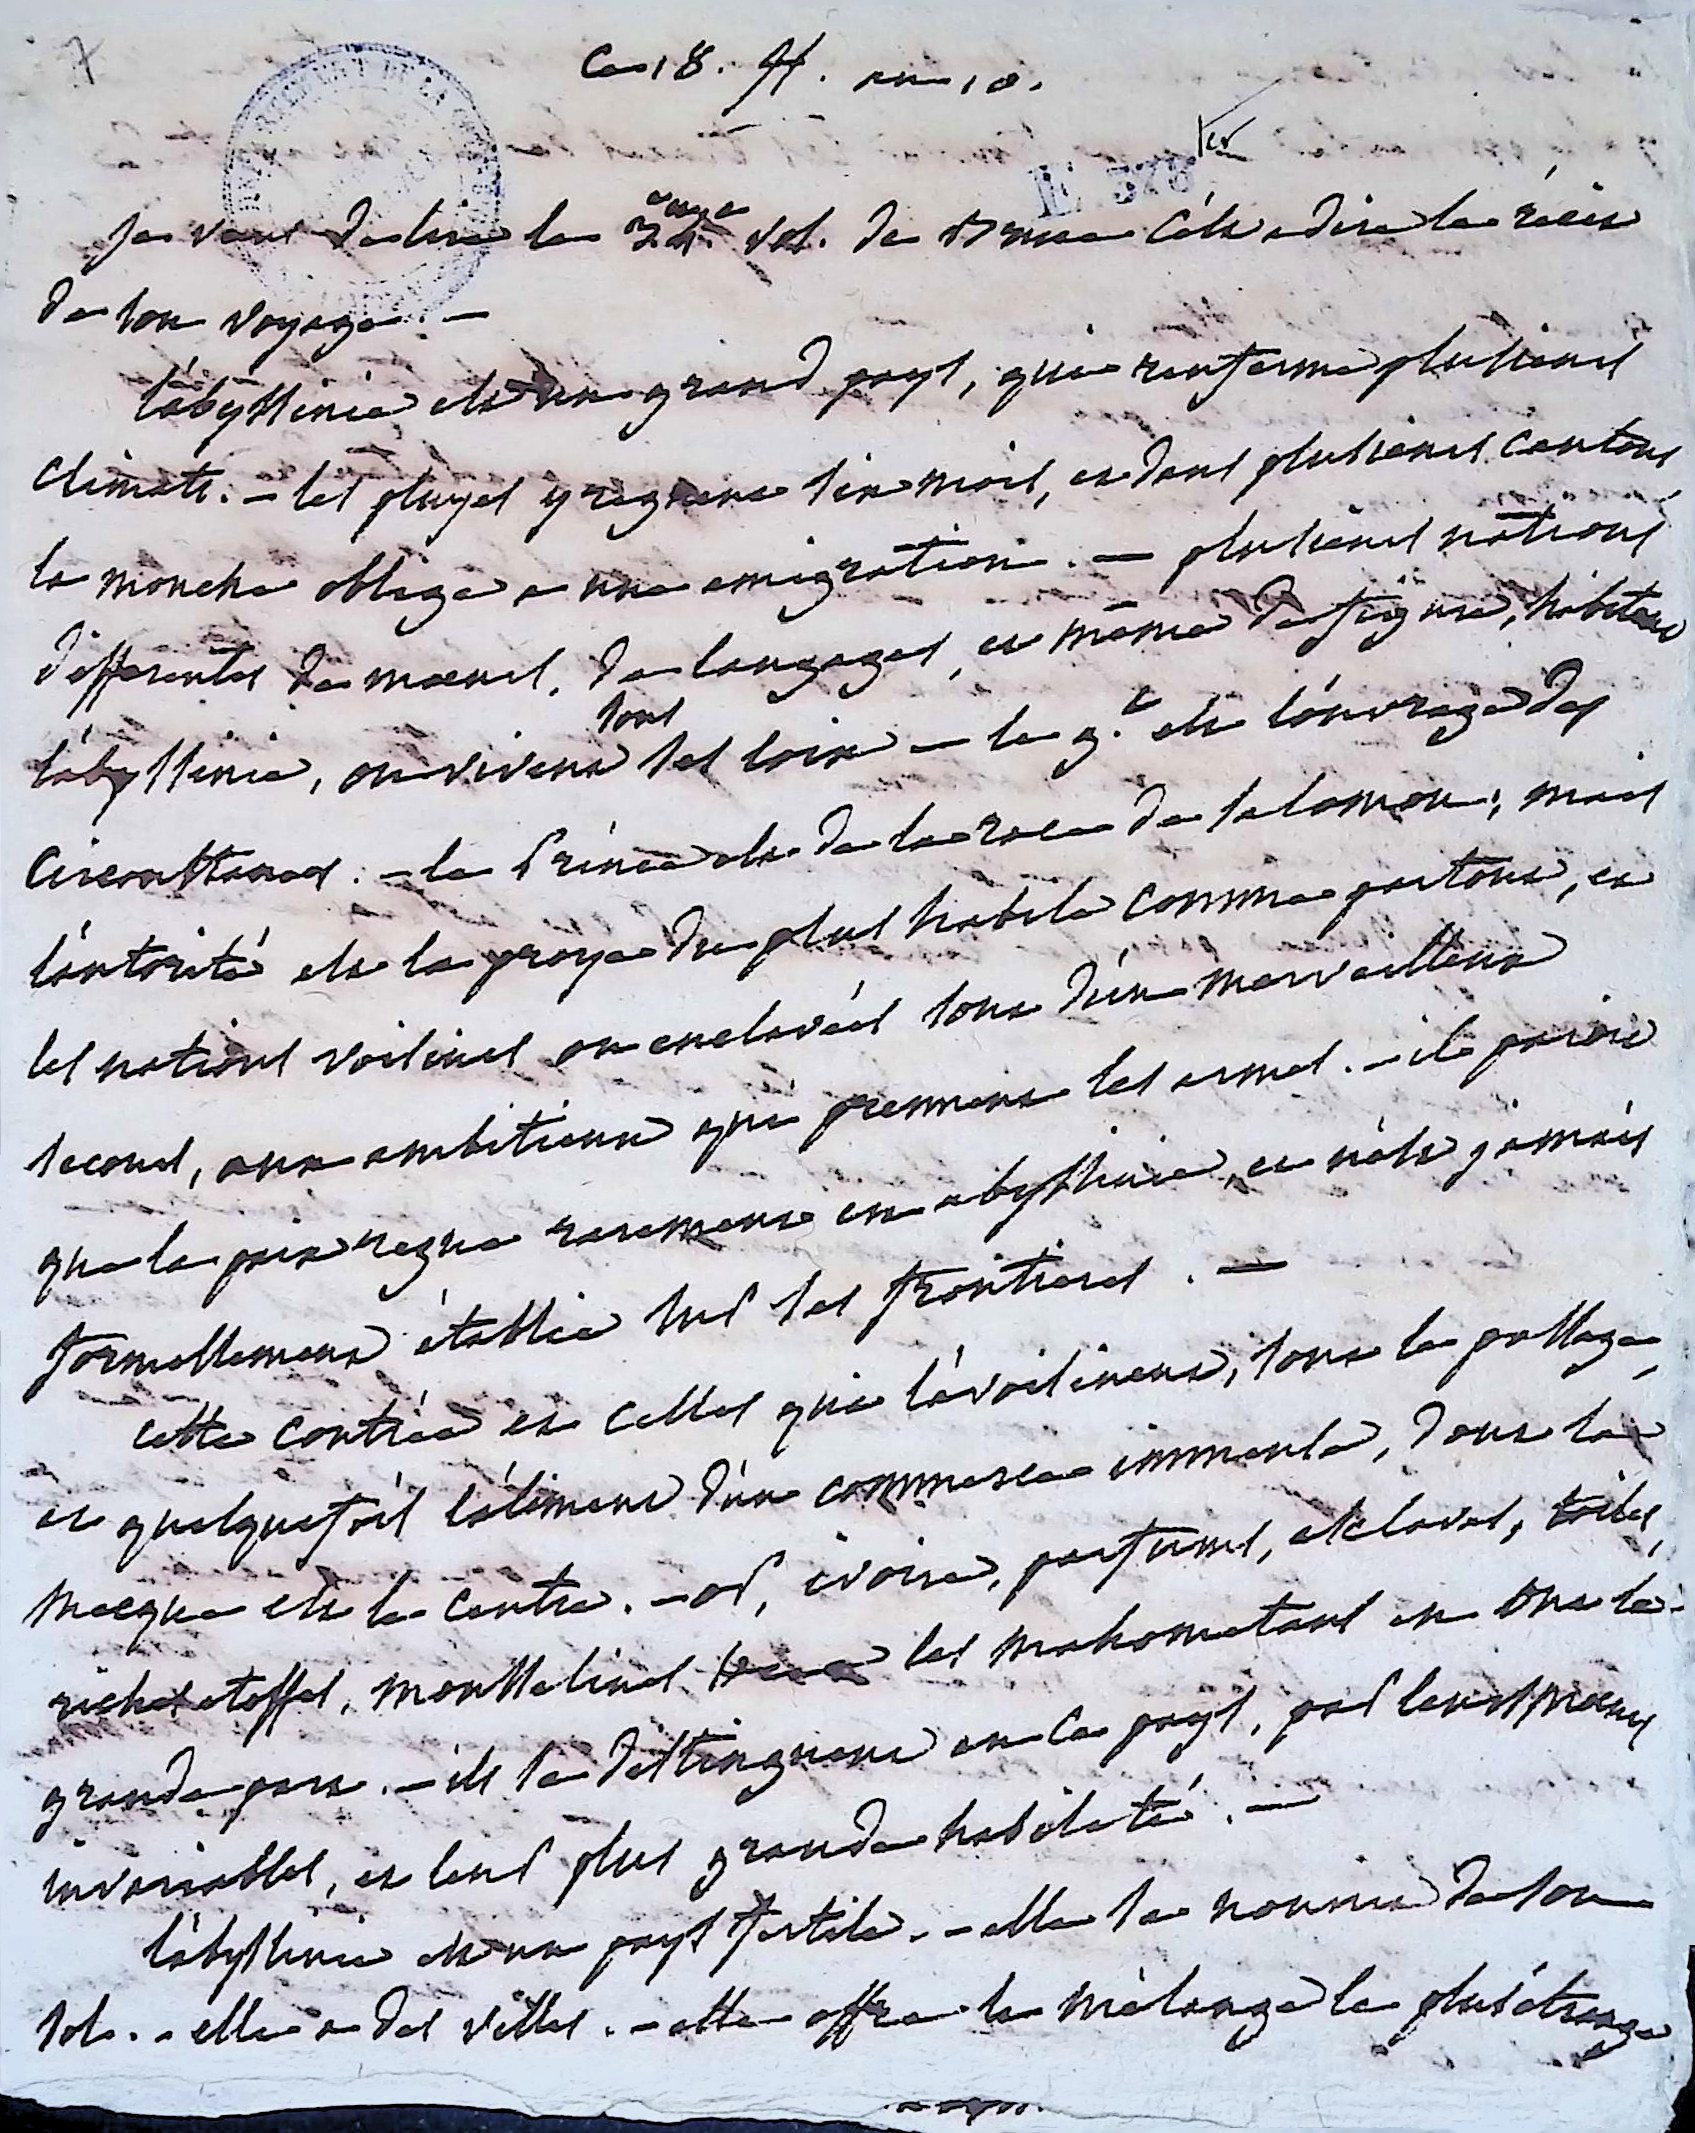 7
Ce 18. ff. an 10.
E 378
Je viens de lire le 2eme vol. de Bruce c'est a dire le récit
de son voyage. —
l'abyssinie est un grand pays, qui renferme plusieurs
climats. - les pluyes y regnent six mois, et dans plusieurs cantons
la mouche oblige a une emigration. — plusieurs nations
differentes de moeurs, de langages, et même de figure, habitent
l'abyssinie, ou vivent sous ses loix - le g.t est l'ouvrage des
circonstances. - le Prince est de la race de salomon; mais
l'autorité est la proye du plus habile comme partout, et
les nations voisines ou enclavées sont d'un merveilleux
secours, aux ambitieux qui prennent les armes. - il paroit
que la paix regne rarement en abyssinie, et n'est jamais
formellement établie sur ses frontieres. —
cette contrée et celles qui l'avoisinent, sont le passage,
et quelquefois l'aliment d'un commerce immense, dont la
mecque est le centre. - or, ivoire, parfums, esclaves, toiles,
riches etoffes, mousselines les mahometans en ont la
grande part. - ils se distinguent en ce pays, par leurs moeurs
invariables, et leur plus grande habileté. —
l'abyssinie est un pays fertile. - elle se nourrit de son
sol. - elle a des villes. - elle offre le mélange le plus étrange